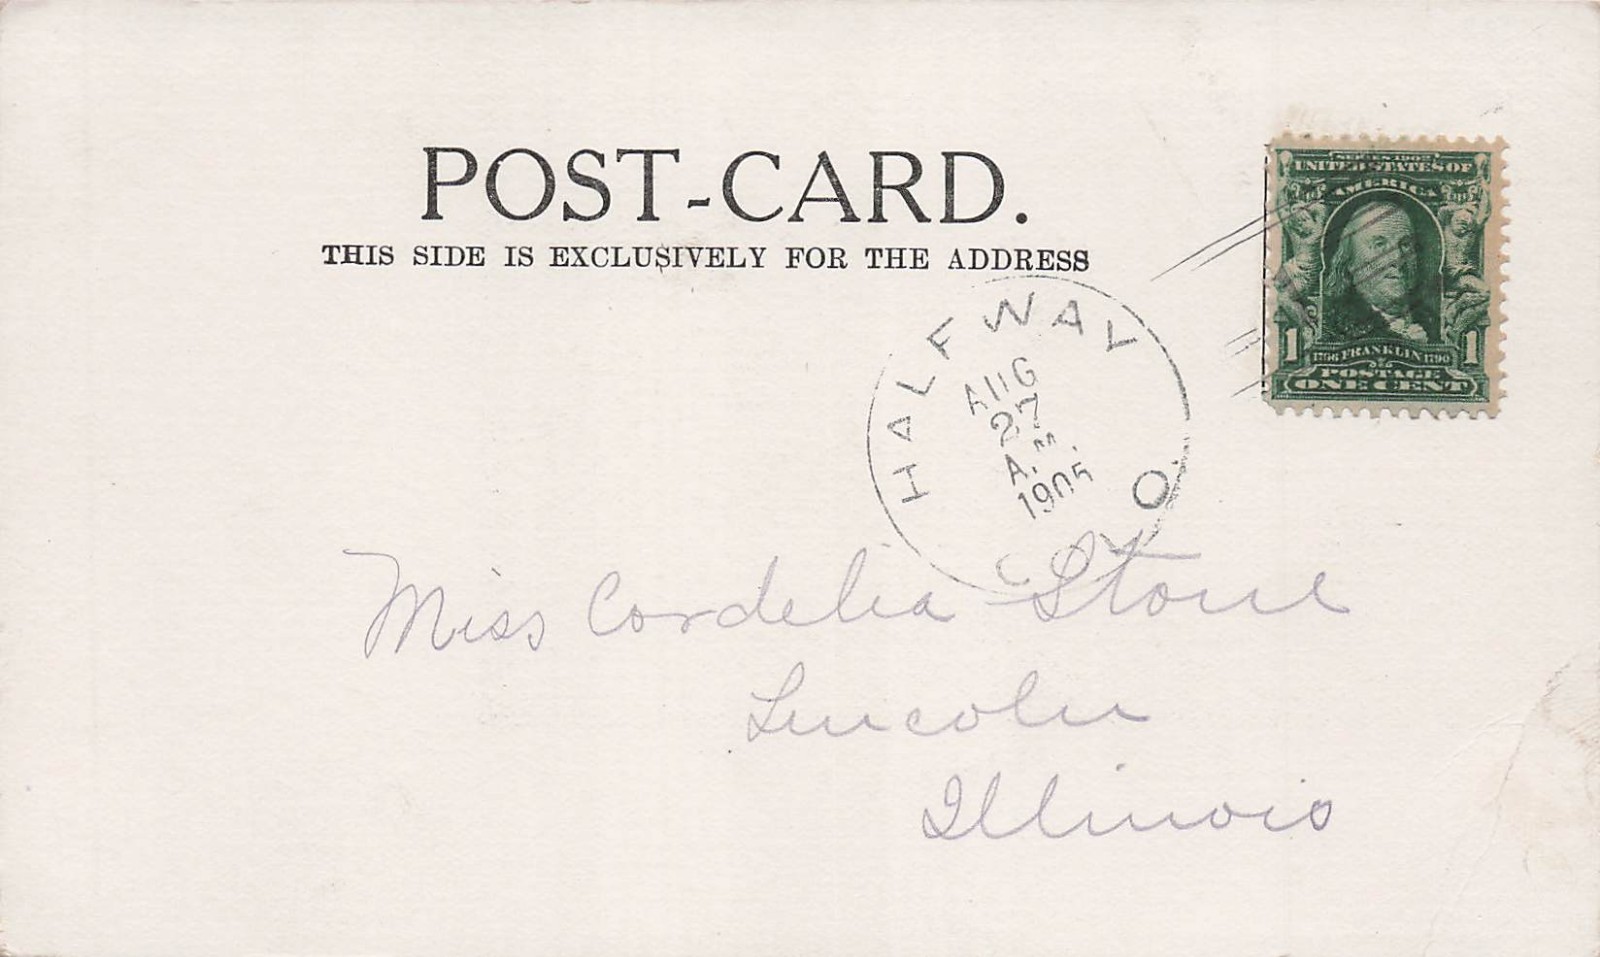 POST-CARD.
THIS SIDE IS EXCLUSIVELY FOR THE ADDRESS
SERIES 1902
UNITED STATES OF
AMERICA
1 1706 FRANKLIN 1790 1
POSTAGE
ONE CENT
HALFWAY
AUG
27
A.M.
1905
Miss Cordelia Stone
Lincoln
Illinois